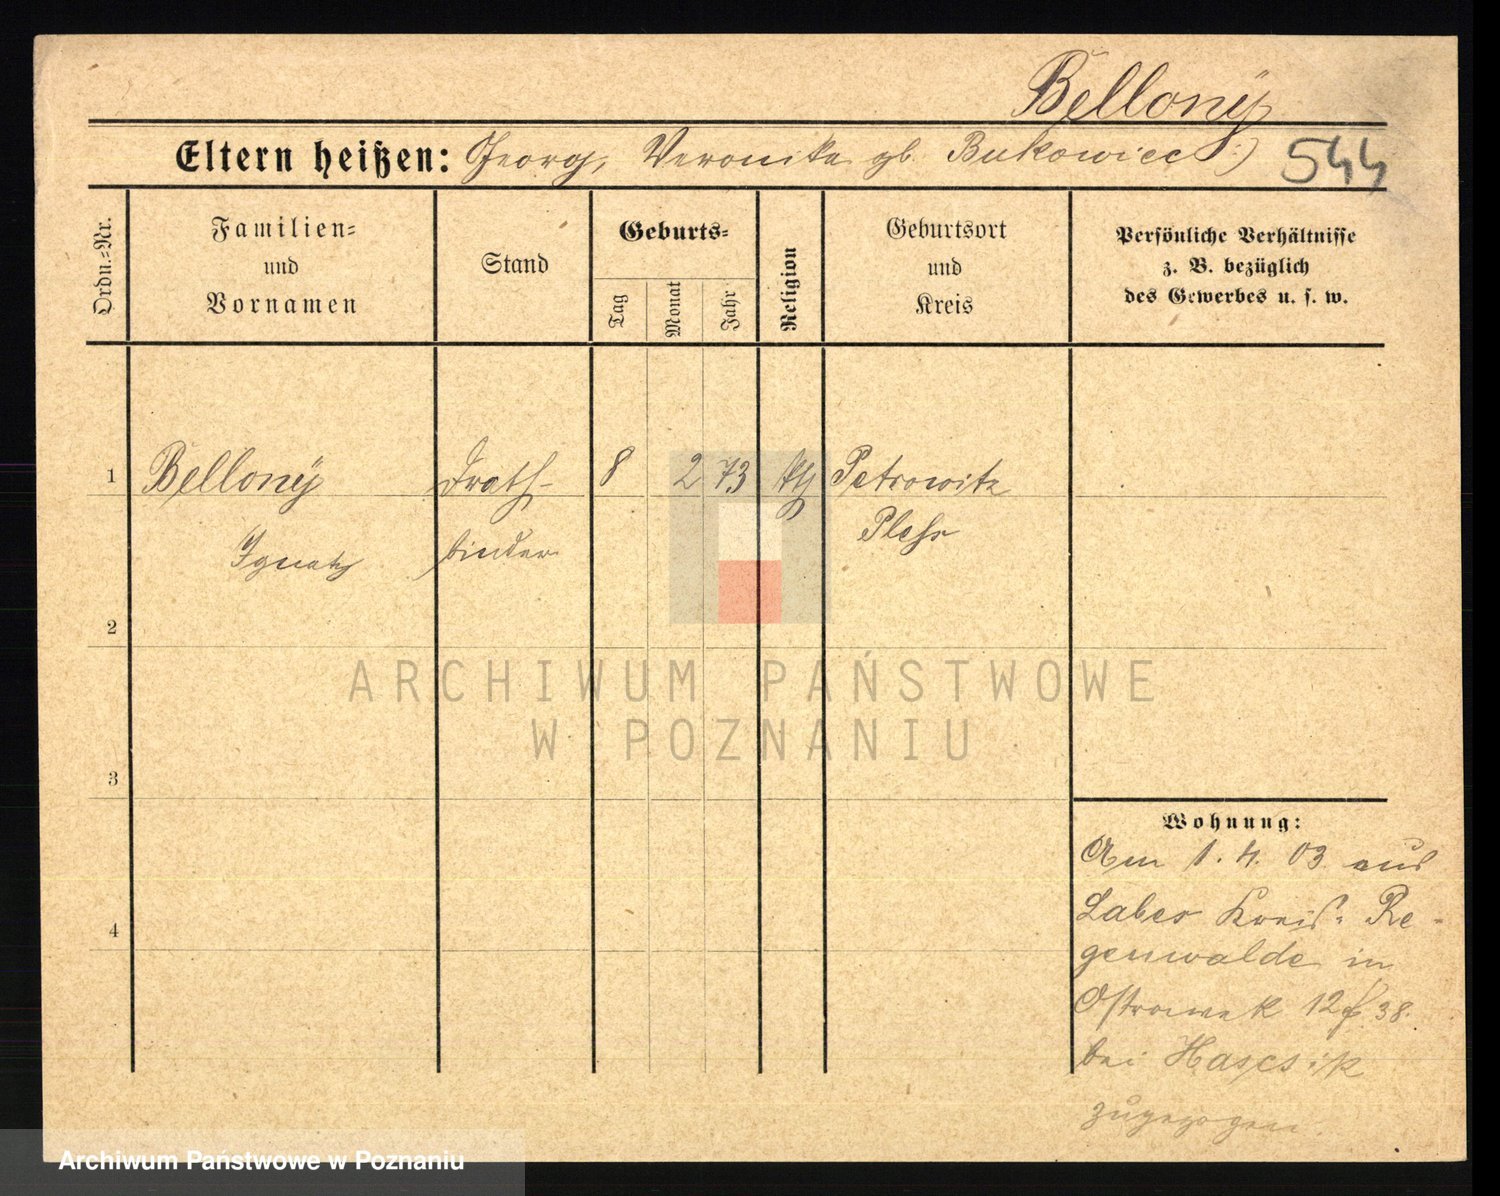 Bellony
Eltern heißen: Georg, Veronika gb. Bukowiec
544
Ordn.-Nr.
Familien- und Vornamen
Stand
Geburts-
Tag
Monat
Jahr
Religion
Geburtsort und Kreis
Persönliche Verhältnisse
z. B. bezüglich
des Gewerbes u. s. w.
1 Bellony Drath- 8 2 73 kth Petrowitz
Ignatz binder Pleß
2
3
4
Wohnung:
Am 1. 4. 03 aus
Labes Kreis Re-
genwalde in
Ostrowek 12 38.
bei
zugezogen.
ARCHIWUM PAŃSTWOWE
W POZNANIU
Archiwum Państwowe w Poznaniu